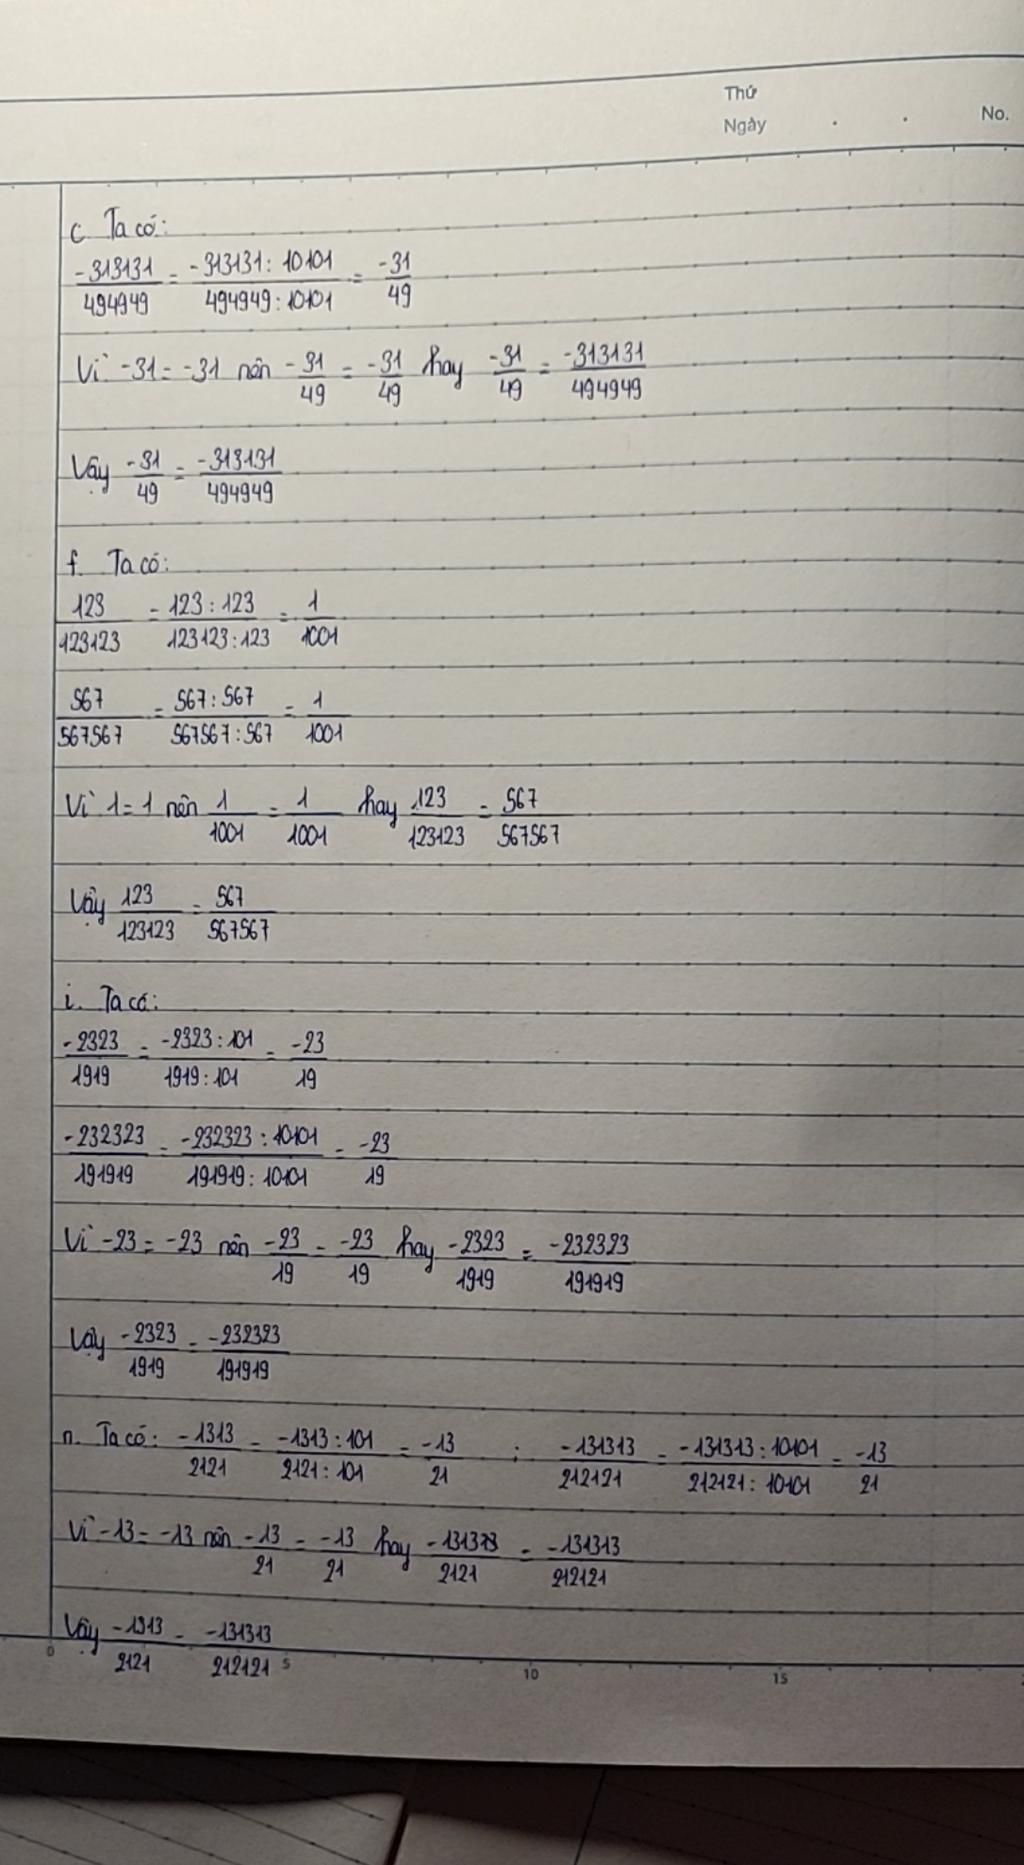 Thứ
Ngày . . No.
c Ta có:
-313131/494949 = -313131:10101/494949:10101 = -31/49
Vì -31 = -31 nên -31/49 = -31/49 hay -31/49 = -313131/494949
Vậy -31/49 = -313131/494949
f. Ta có:
123/123123 = 123:123/123123:123 = 1/1001
567/567567 = 567:567/567567:567 = 1/1001
Vì 1=1 nên 1/1001 = 1/1001 hay 123/123123 = 567/567567
Vậy 123/123123 = 567/567567
i. Ta có:
-2323/1919 = -2323:101/1919:101 = -23/19
-232323/191919 = -232323:10101/191919:10101 = -23/19
Vì -23 = -23 nên -23/19 = -23/19 hay -2323/1919 = -232323/191919
Vậy -2323/1919 = -232323/191919
n. Ta có: -1313/2121 = -1313:101/2121:101 = -13/21 ; -131313/212121 = -131313:10101/212121:10101 = -13/21
Vì -13 = -13 nên -13/21 = -13/21 hay /2121 = -131313/212121
Vậy -1313/2121 = -131313/212121
0 5 10 15